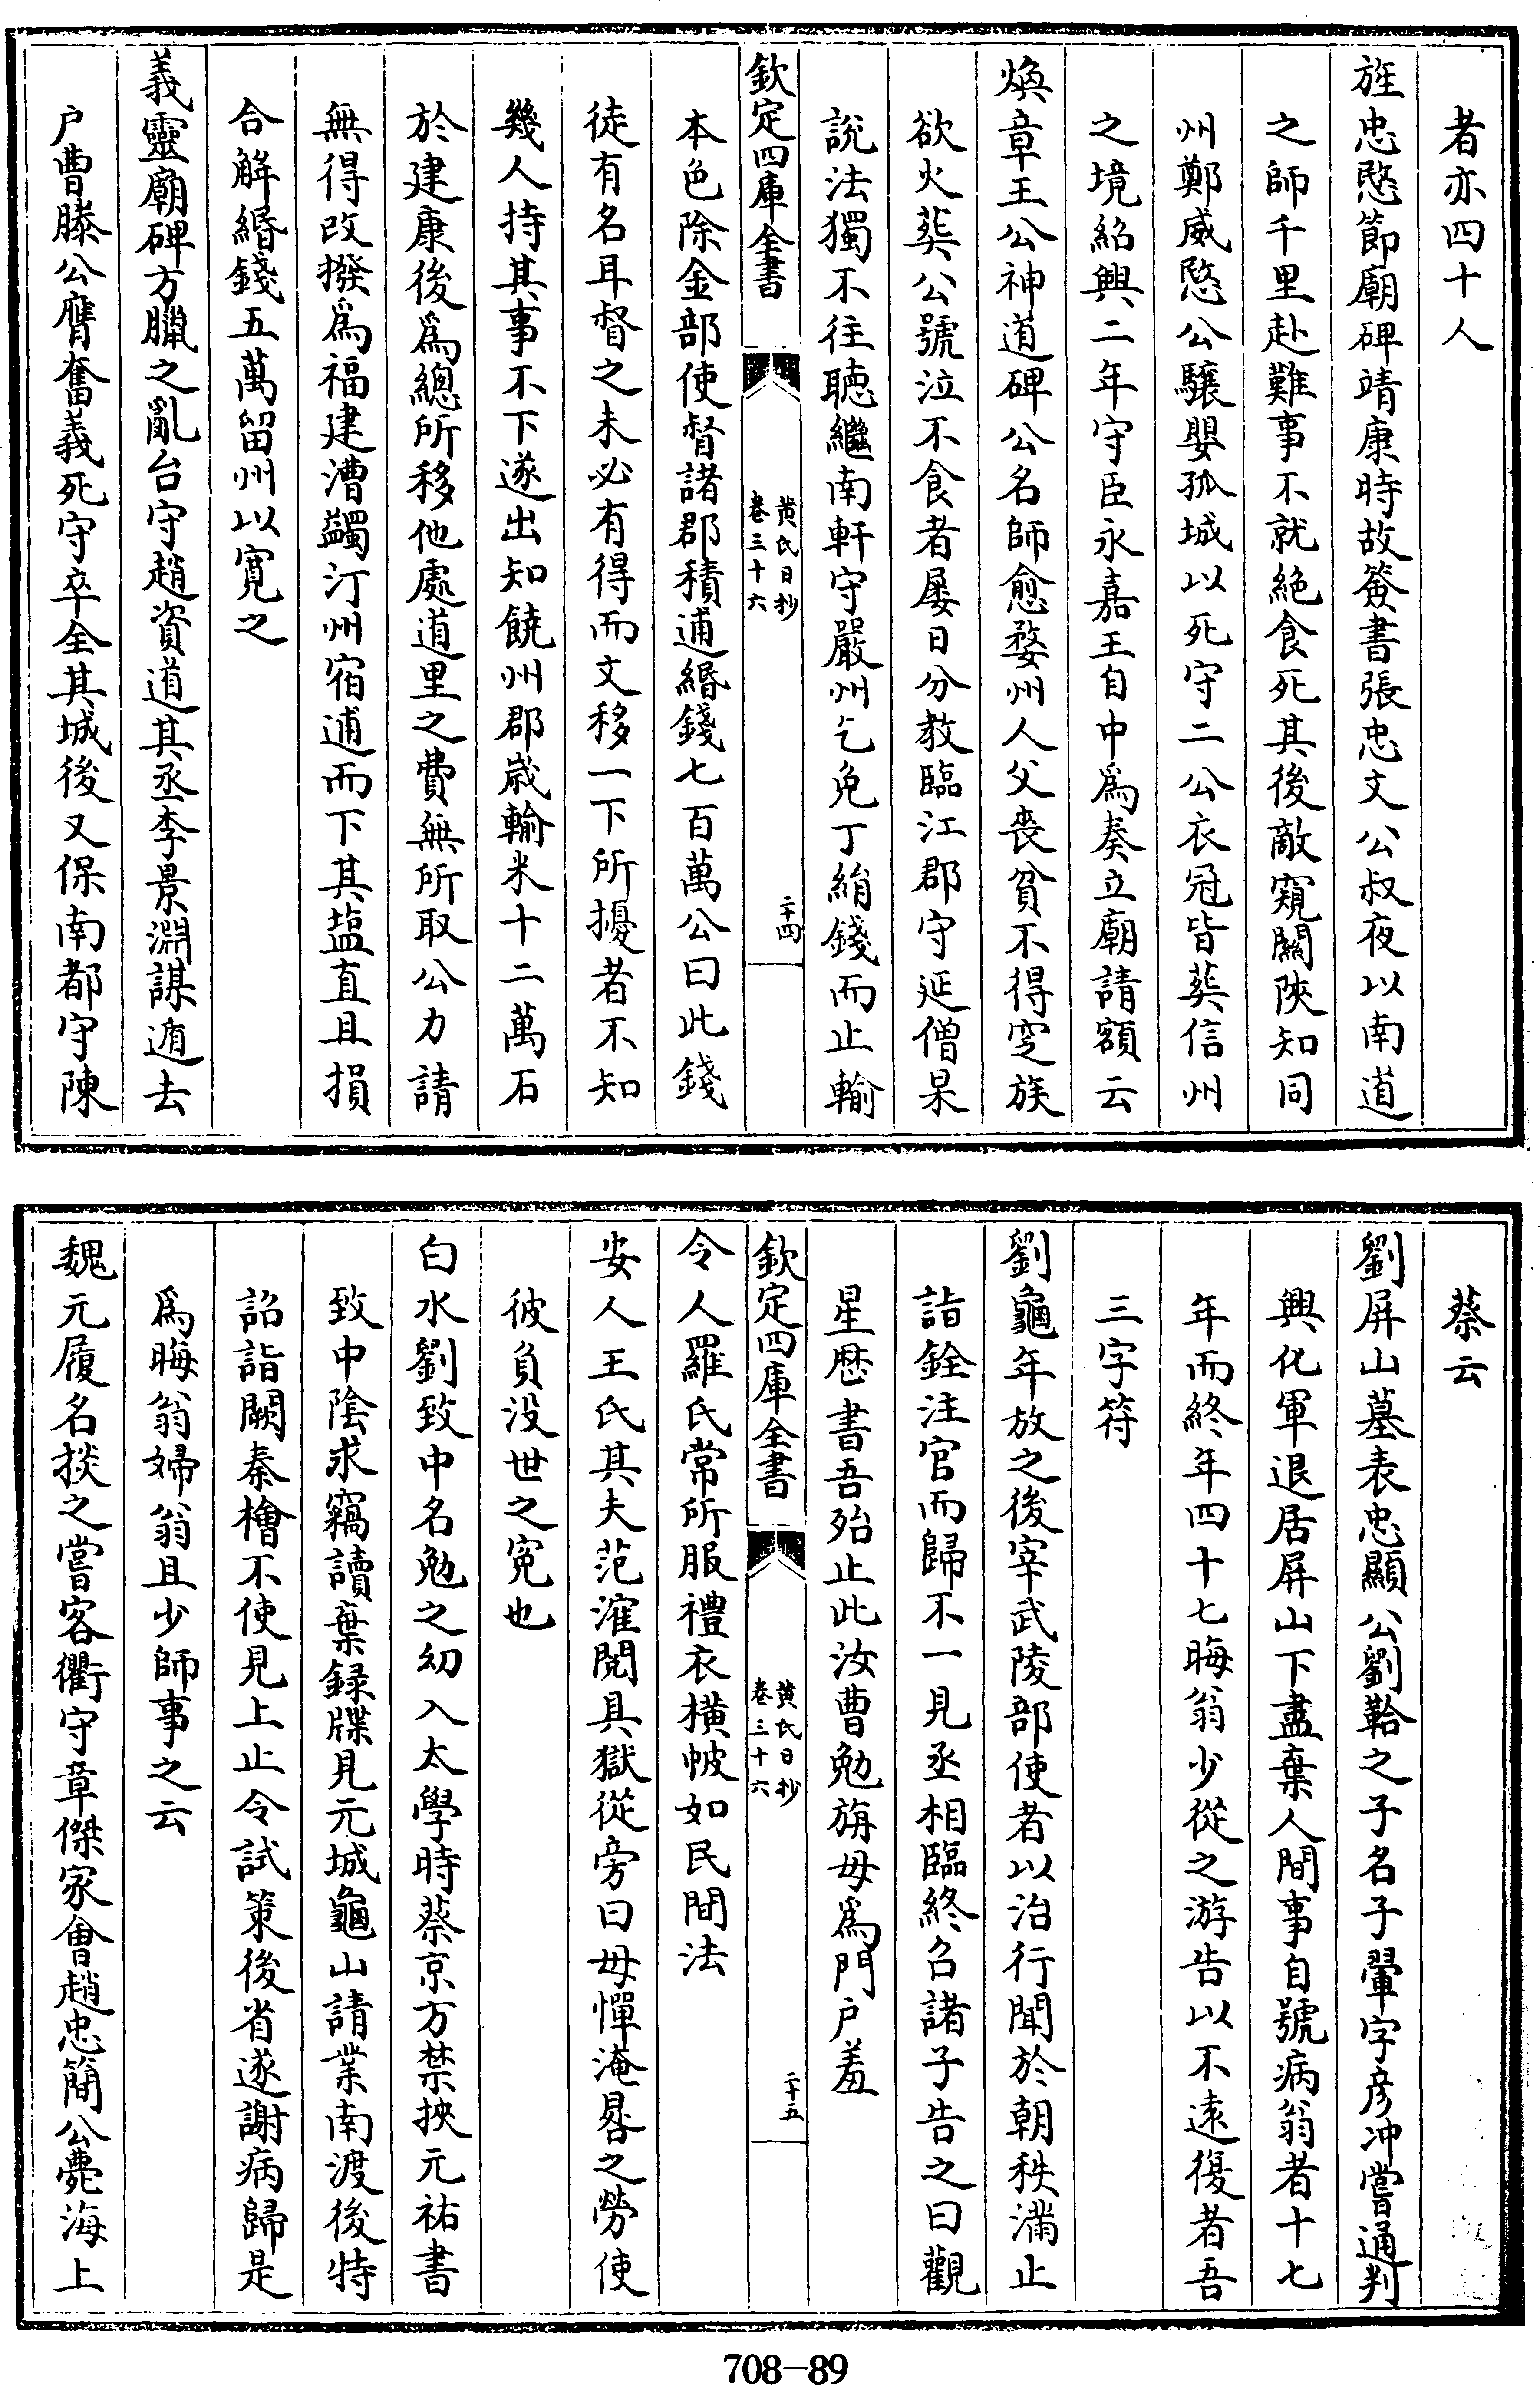 者亦四十人
旌忠愍節廟碑靖康時故簽書張忠文公叔夜以南道
之師千里赴難事不就絶食死其後敵窺關陜知同
州鄭威愍公驤嬰孤城以死守二公衣冠皆葬信州
之境紹興二年守臣永嘉王自中爲奏立廟請額云
煥章王公神道碑公名師愈婺州人父喪貧不得窆族
欲火葬公號泣不食者屡日分教臨江郡守延僧杲
說法獨不往聴繼南軒守嚴州乞免丁絹錢而止輸
欽定四庫全書
黄氏日抄
卷三十六
二十四
本色除金部使督諸郡積逋緡錢七百萬公曰此錢
徒有名耳督之未必有得而文移一下所擾者不知
幾人持其事不下遂出知饒州郡歲輸米十二萬石
於建康後爲總所移他處道里之費無所取公力請
無得改撥爲福建漕蠲汀州宿逋而下其盐直且損
合解緡錢五萬留州以寛之
義靈廟碑方臘之亂台守趙資道其丞李景淵謀遁去
户曹滕公膺奮義死守卒全其城後又保南都守陳
蔡云
劉屏山墓表忠顯公劉韐之子名子翬字彦冲嘗通判
興化軍退居屏山下盡棄人間事自號病翁者十七
年而終年四十七晦翁少從之游告以不逺復者吾
三字符
劉龜年放之後宰武陵部使者以治行聞於朝秩滿止
詣銓注官而歸不一見丞相臨終召諸子告之曰觀
星歴書吾殆止此汝曹勉旃毋爲門户羞
欽定四庫全書
黄氏日抄
卷三十六
二十五
令人羅氏常所服禮衣横帔如民間法
安人王氏其夫范漼閱具獄從旁曰毋憚淹晷之勞使
彼負没世之寃也
白水劉致中名勉之幼入太學時蔡京方禁挾元祐書
致中陰求竊讀棄録牒見元城龜山請業南渡後特
詔詣闕秦檜不使見上止令試策後省遂謝病歸是
爲晦翁婦翁且少師事之云
魏元履名掞之嘗客衢守章傑家會趙忠簡公薨海上
708-89